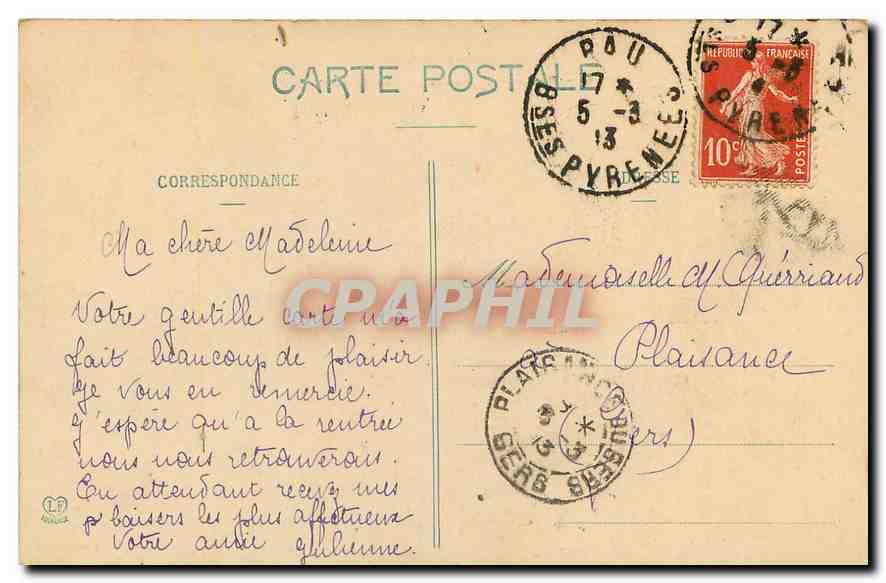 CARTE POSTALE
PAU
17 *
5 -3
13
BSES PYRENEES
REPUBLIQUE FRANÇAISE
10c
POSTES
CORRESPONDANCE
ADRESSE
Ma chère Madeleine
Votre gentille carte m'a
fait beaucoup de plaisir
Je vous en remercie.
J'espère qu'à la rentrée
nous nous retrouverons.
En attendant recevez mes
baisers les plus affectueux
Votre amie Julienne.
Mademoiselle M Guérriaud
Plaisance
(Gers)
PLAISANCE DU GERS
GERS
LF
CPAPHIL